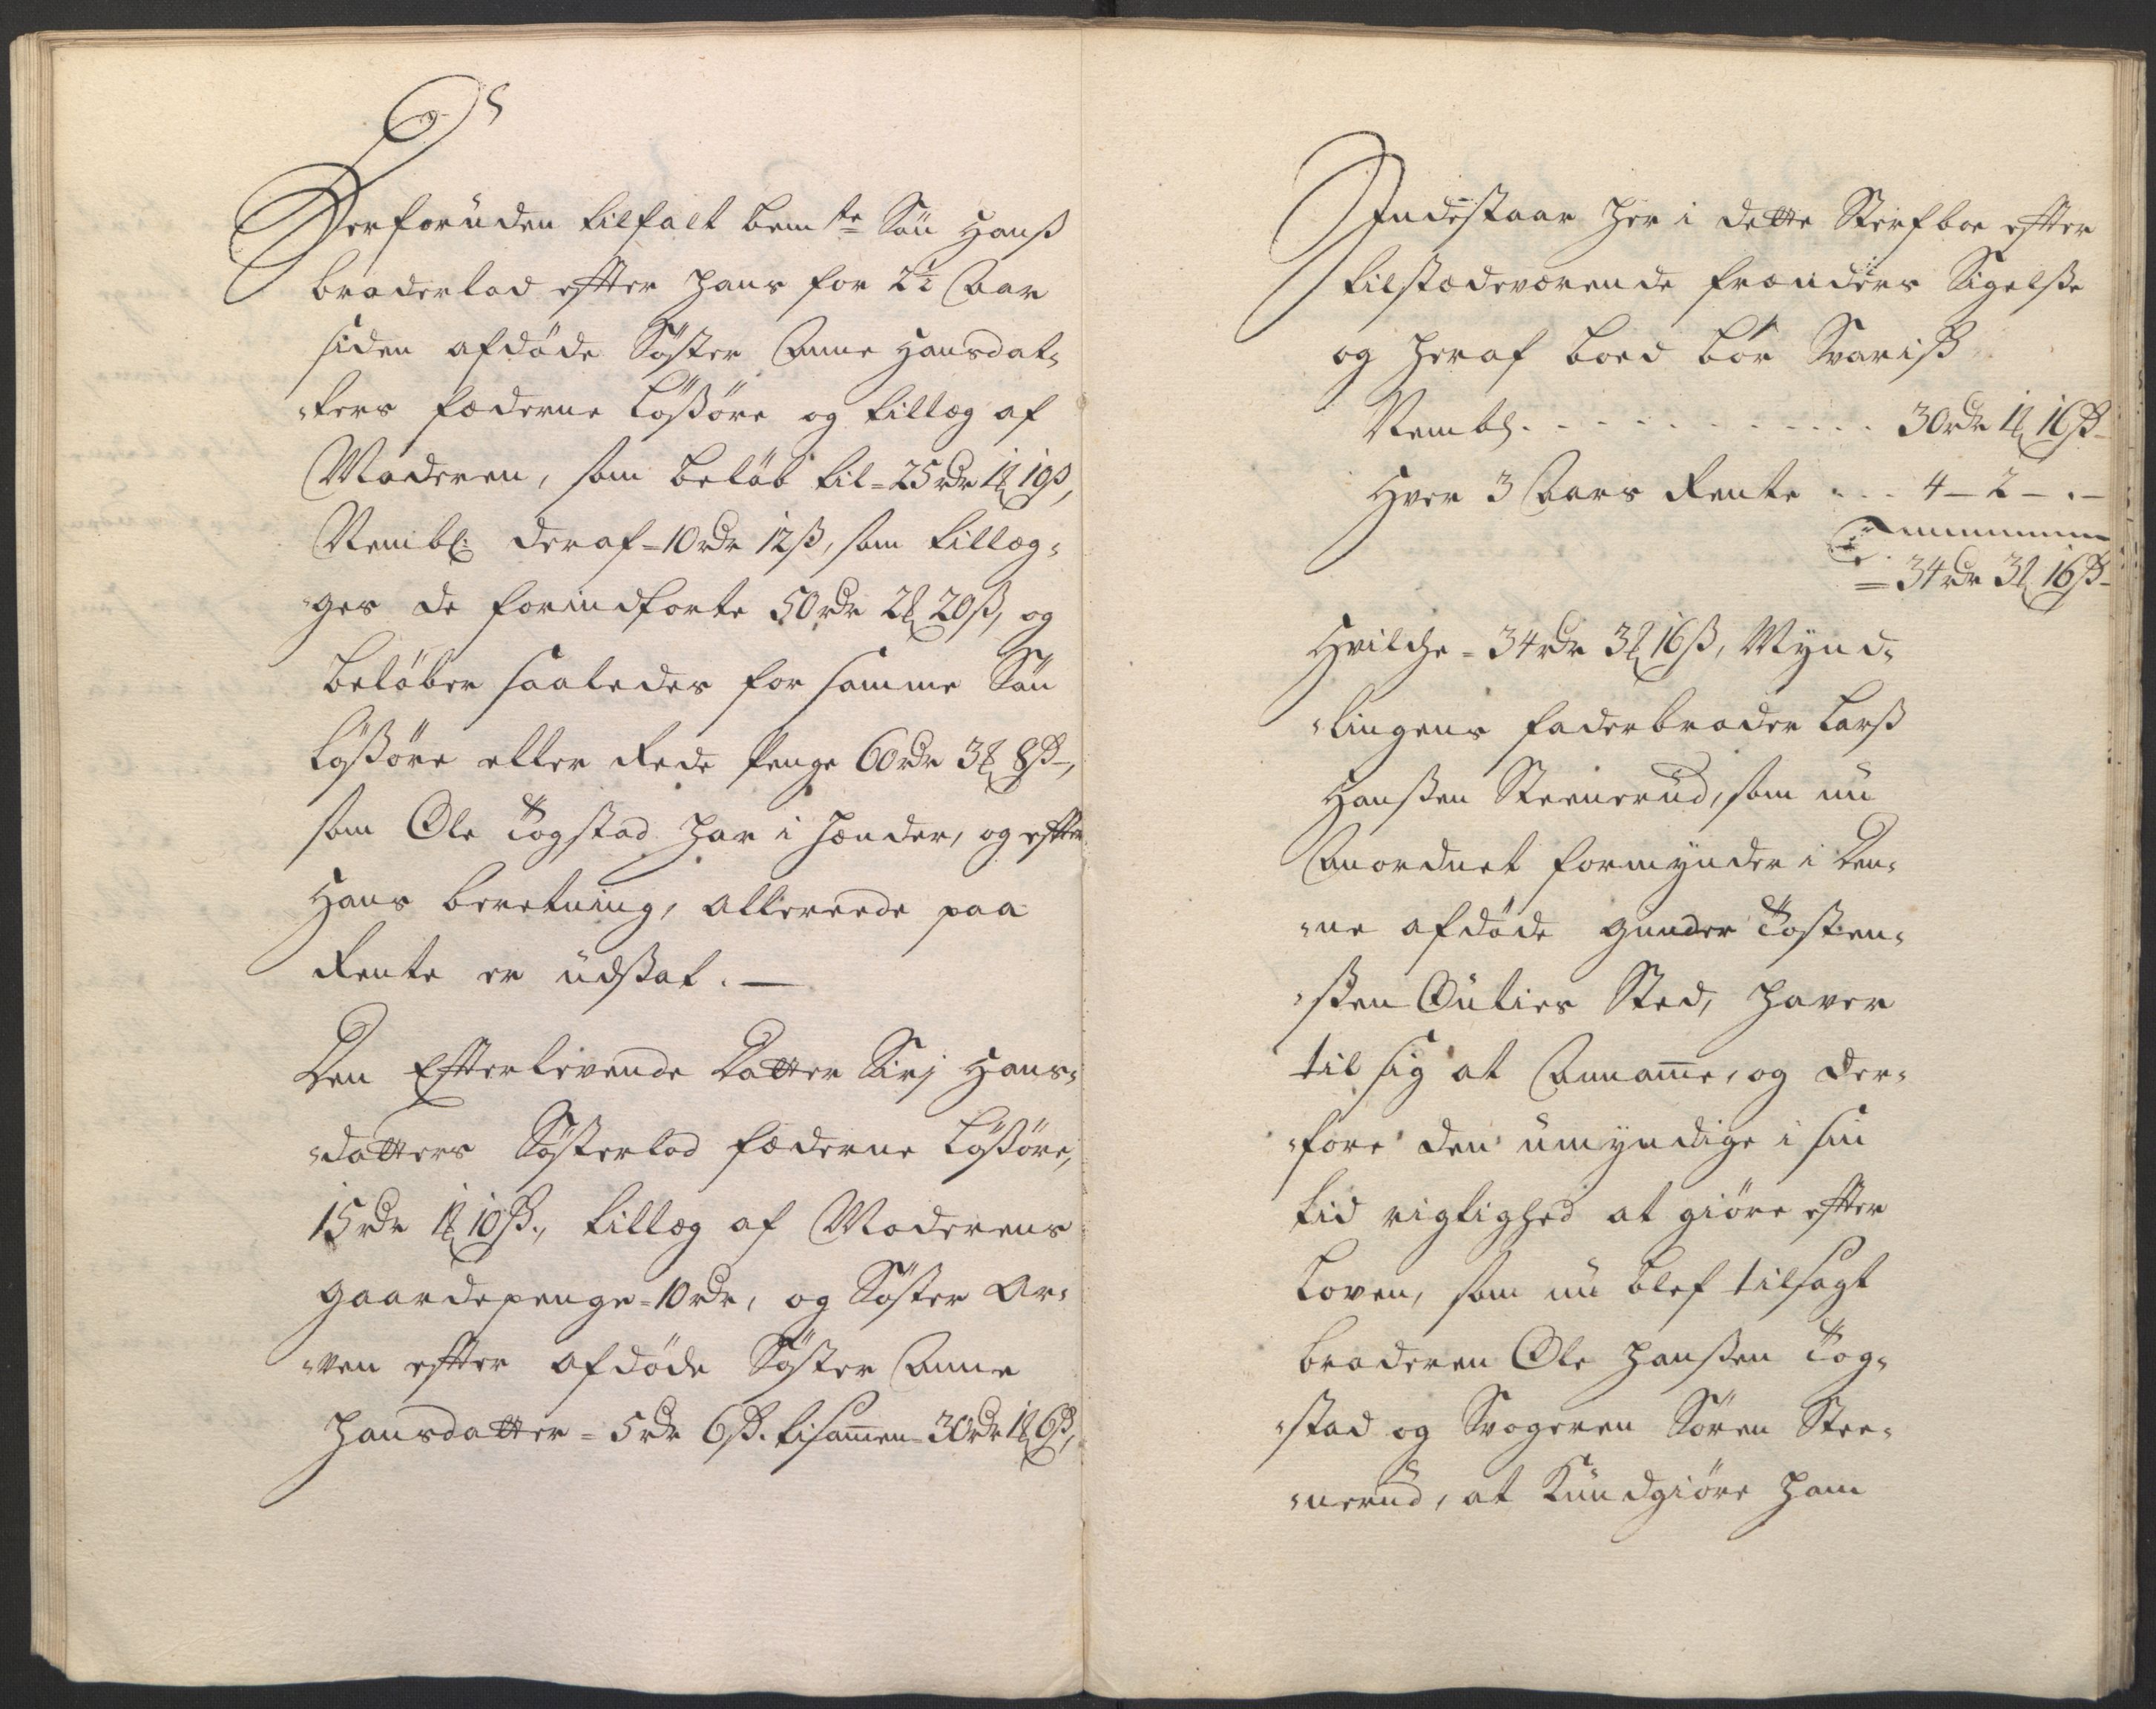 Derforüden tilfalt bem.te Sön Hanß
broderlod efter hans for 2½ Aar
siden afdöde Söster Anne Hansdat-
-ters fæderne Lößöre og tillæg af
Moderen, som beløb til=25 rdr 1 ℔ 19 ß,
Nembl: deraf=10 rdr 12 ß, som tillæg-
-ges de forindførte 50 rdr 2 ℔ 20 ß, og
beløber saaledes for samme Sön
Lößöre eller Rede Penge 60 rdr 3 ℔ 8 ß,
som Ole Togstad har i hænder, og efter
Hans beretning, allereede paa
Rente er üdsat. —
Den Efterlevende Datter Siri Hans-
-datters Søsterlod fæderne Lößöre,
15 rdr 1 ℔ 10 ß., tillæg af Moderens
gaardepenge=10 rdr, og Söster Ar-
-ven efter afdöde Söster Anne
hansdatter=5 rdr 6 ß. tisam̄en=30 rdr 1 ℔ 16 ß,
Indestaar her i dette Sterfboe efter
tilstædeværende frænders Sigelße
og heraf boed bör Svariß
Nembl. - - - - - - - 30 rdr 1 ℔ 16 ß
Hver 3 Aars Rente . . . 4 – 2 – . –
= 34 rdr 3 ℔ 16 ß
Hvilche=34 rdr 3 ℔ 16 ß, Mynd-
-lingens faderbroder Larß
Hanßen Steenerüd, som nü
Anordnet formynder i Den-
-ne afdöde Gunder Tosten-
-ßen Outies Sted, haver
til sig at Annam̄e, og der-
-fore den ümyndige i sin
tid rigtighed at giöre efter
Loven, som nü blef tilsagt
broderen Ole Hanßen Tog-
-stad og Svogeren Sören Stee-
-nerüd, at Kündgiöre ham